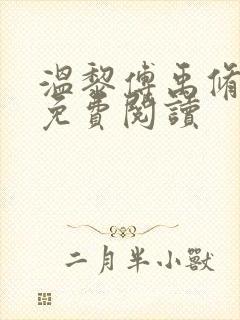 溫黎傅禹脩
免費閱讀
二月半小獸